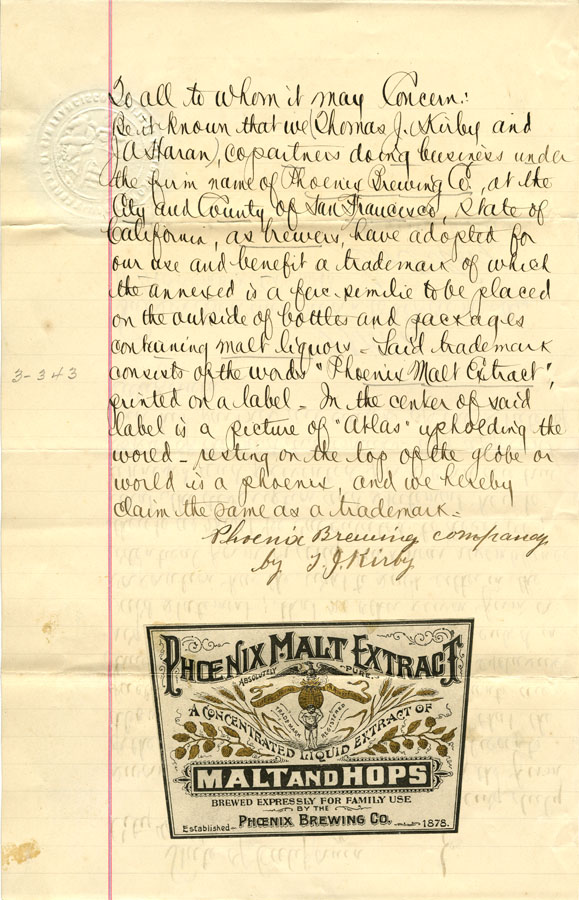 To all to whom it may Concern:
Be it known that we (Thomas J. Kirby and
J A Haran), copartners doing business under
the firm name of Phoenix Brewing Co, at the
City and County of San Francisco, State of
California, as brewers, have adopted for
our use and benefit a trademark of which
the annexed is a fac-similie to be placed
on the outside of bottles and packages
containing malt liquors - Said trademark
3-343
consists of the words "Phoenix Malt Extract",
printed on a label - In the center of said
label is a picture of "Atlas" upholding the
world - resting on the top of the globe or
world is a phoenix, and we hereby
claim the same as a trademark -
Phoenix Brewing company
by T. J. Kirby
PHŒNIX MALT EXTRACT
ABSOLUTELY PURE
TRADEMARK REGISTERED
A CONCENTRATED LIQUID EXTRACT OF
MALT AND HOPS
BREWED EXPRESSLY FOR FAMILY USE
BY THE
PHŒNIX BREWING CO.
Established 1878.